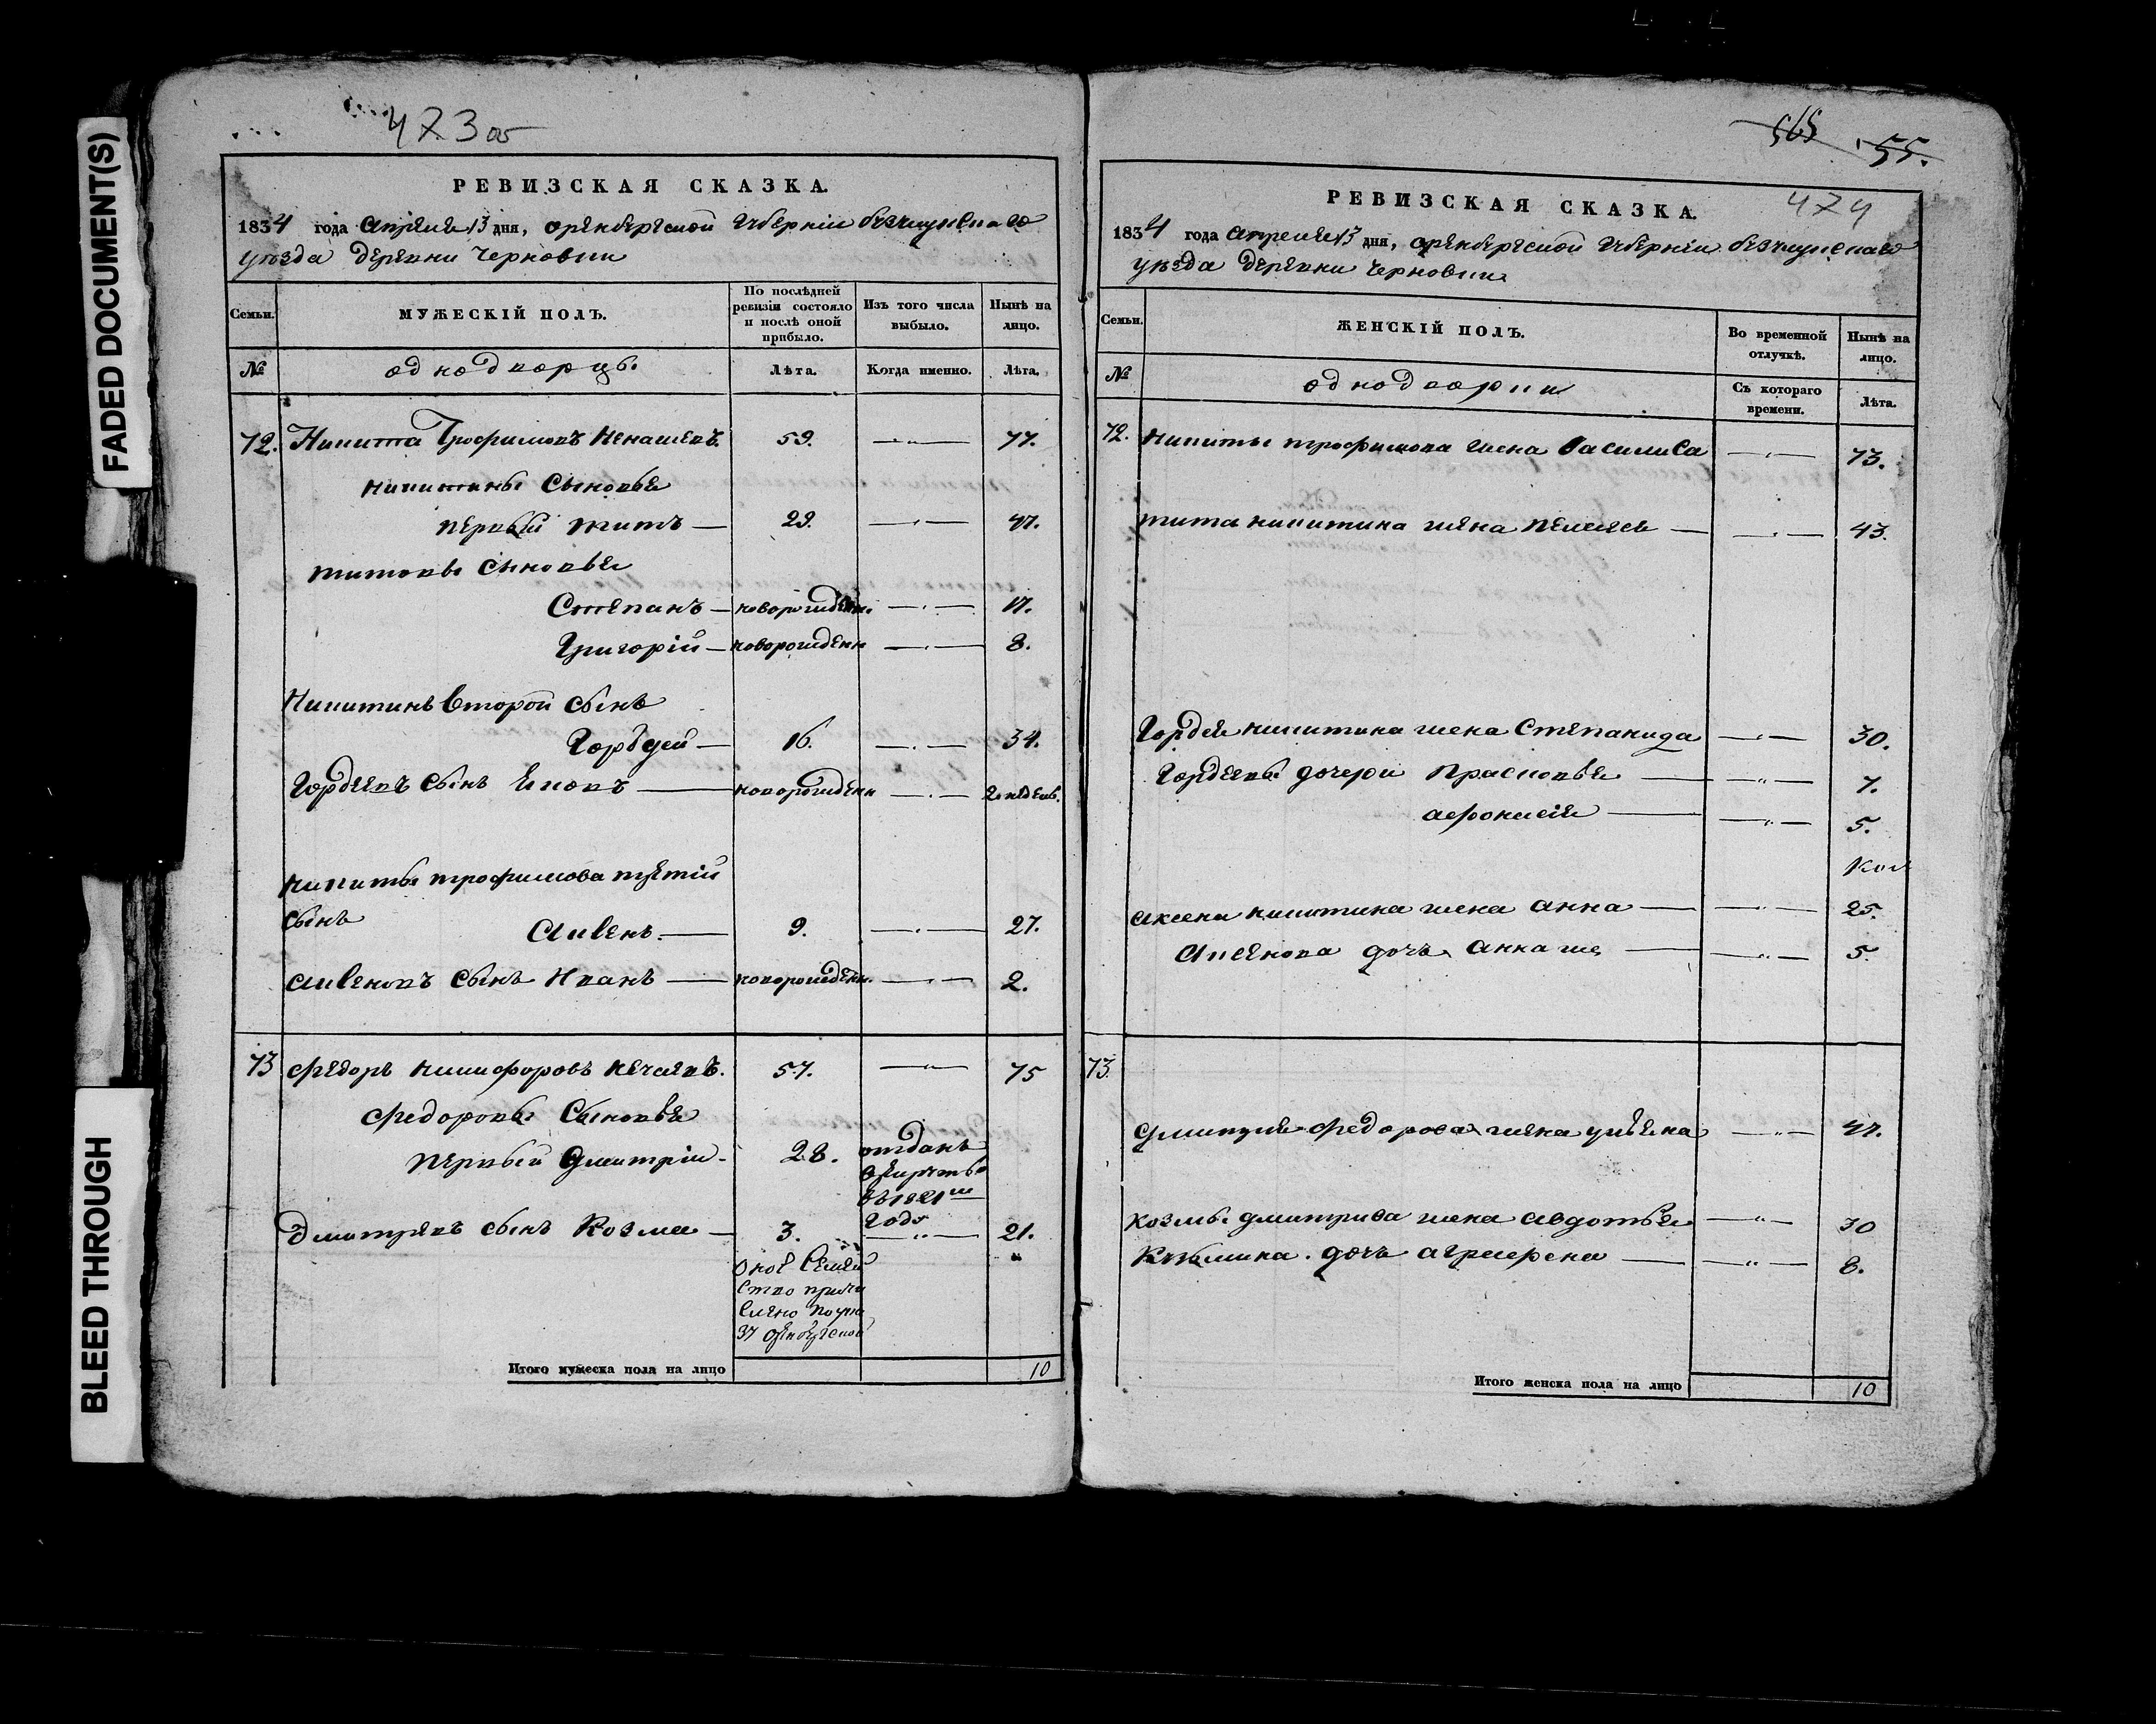 FADED DOCUMENT(S)
BLEED THROUGH
473 об
РЕВИЗСКАЯ СКАЗКА.
1834 года апреля 13 дня, оренбергской губернии бузулукскаго
уезда деревни Черновки
Семьи.
МУЖЕСКІЙ ПОЛЪ.
По послѣдней ревизіи состояло и послѣ оной прибыло.
Изъ того числа выбыло.
Нынѣ на лицо.
№
однодворцы
Лѣта.
Когда именно.
Лѣта.
72. Никита Трофимовъ Ненашевъ. 59. — " — 77.
никитины сыновья
первый титъ — 29. — " — 47.
титовы сыновья
Степанъ — новорожденн. — " — 17.
Григорій — новорожденн — " — 8.
Никитинъ второй сынъ
Гордей — 16. — " — 34.
Гордеевъ сынъ — новорожденн — " — 2 недель.
никиты трофимова третій
сынъ
Аксенъ. — 9. — " — 27.
аксеновъ сынъ Иванъ — новорожденн. — " — 2.
73 федоръ никифоровъ нечаевъ. 57. — " — 75
федоровы сыновья
первый дмитрій - 28. отданъ
в рекруты
въ 1821м
годе
дмитревъ сынъ Козма — 3. — " — 21.
оное семей
ство причи
слено по указ
37 оренбергской
Итого мужеска пола на лицо 10
565 55.
474
РЕВИЗСКАЯ СКАЗКА.
1834 года апреля 13 дня, оренбергской губерніи бузулукскаго
уезда деревни черновки
Семьи.
ЖЕНСКІЙ ПОЛЪ.
Во временной отлучкѣ.
Нынѣ на лицо.
№
однодворки
Съ котораго времени.
Лѣта.
72. никиты трофимова жена василиса — " — 73.
тита никитина жена — " — 43.
Гордея никитина жена Степанида — " — 30.
Гордеевы дочери Прасковья — " — 7.
афонасія — " — 5.
аксена никитина жена анна — " — 25.
Аксенова дочь анна же — " — 5.
73.
дмитрия федорова жена ульяна — " — 47.
козмы дмитрива жена авдотья — " — 30
Кузмина дочь аграфена — " — 8.
Итого женска пола на лицо 10